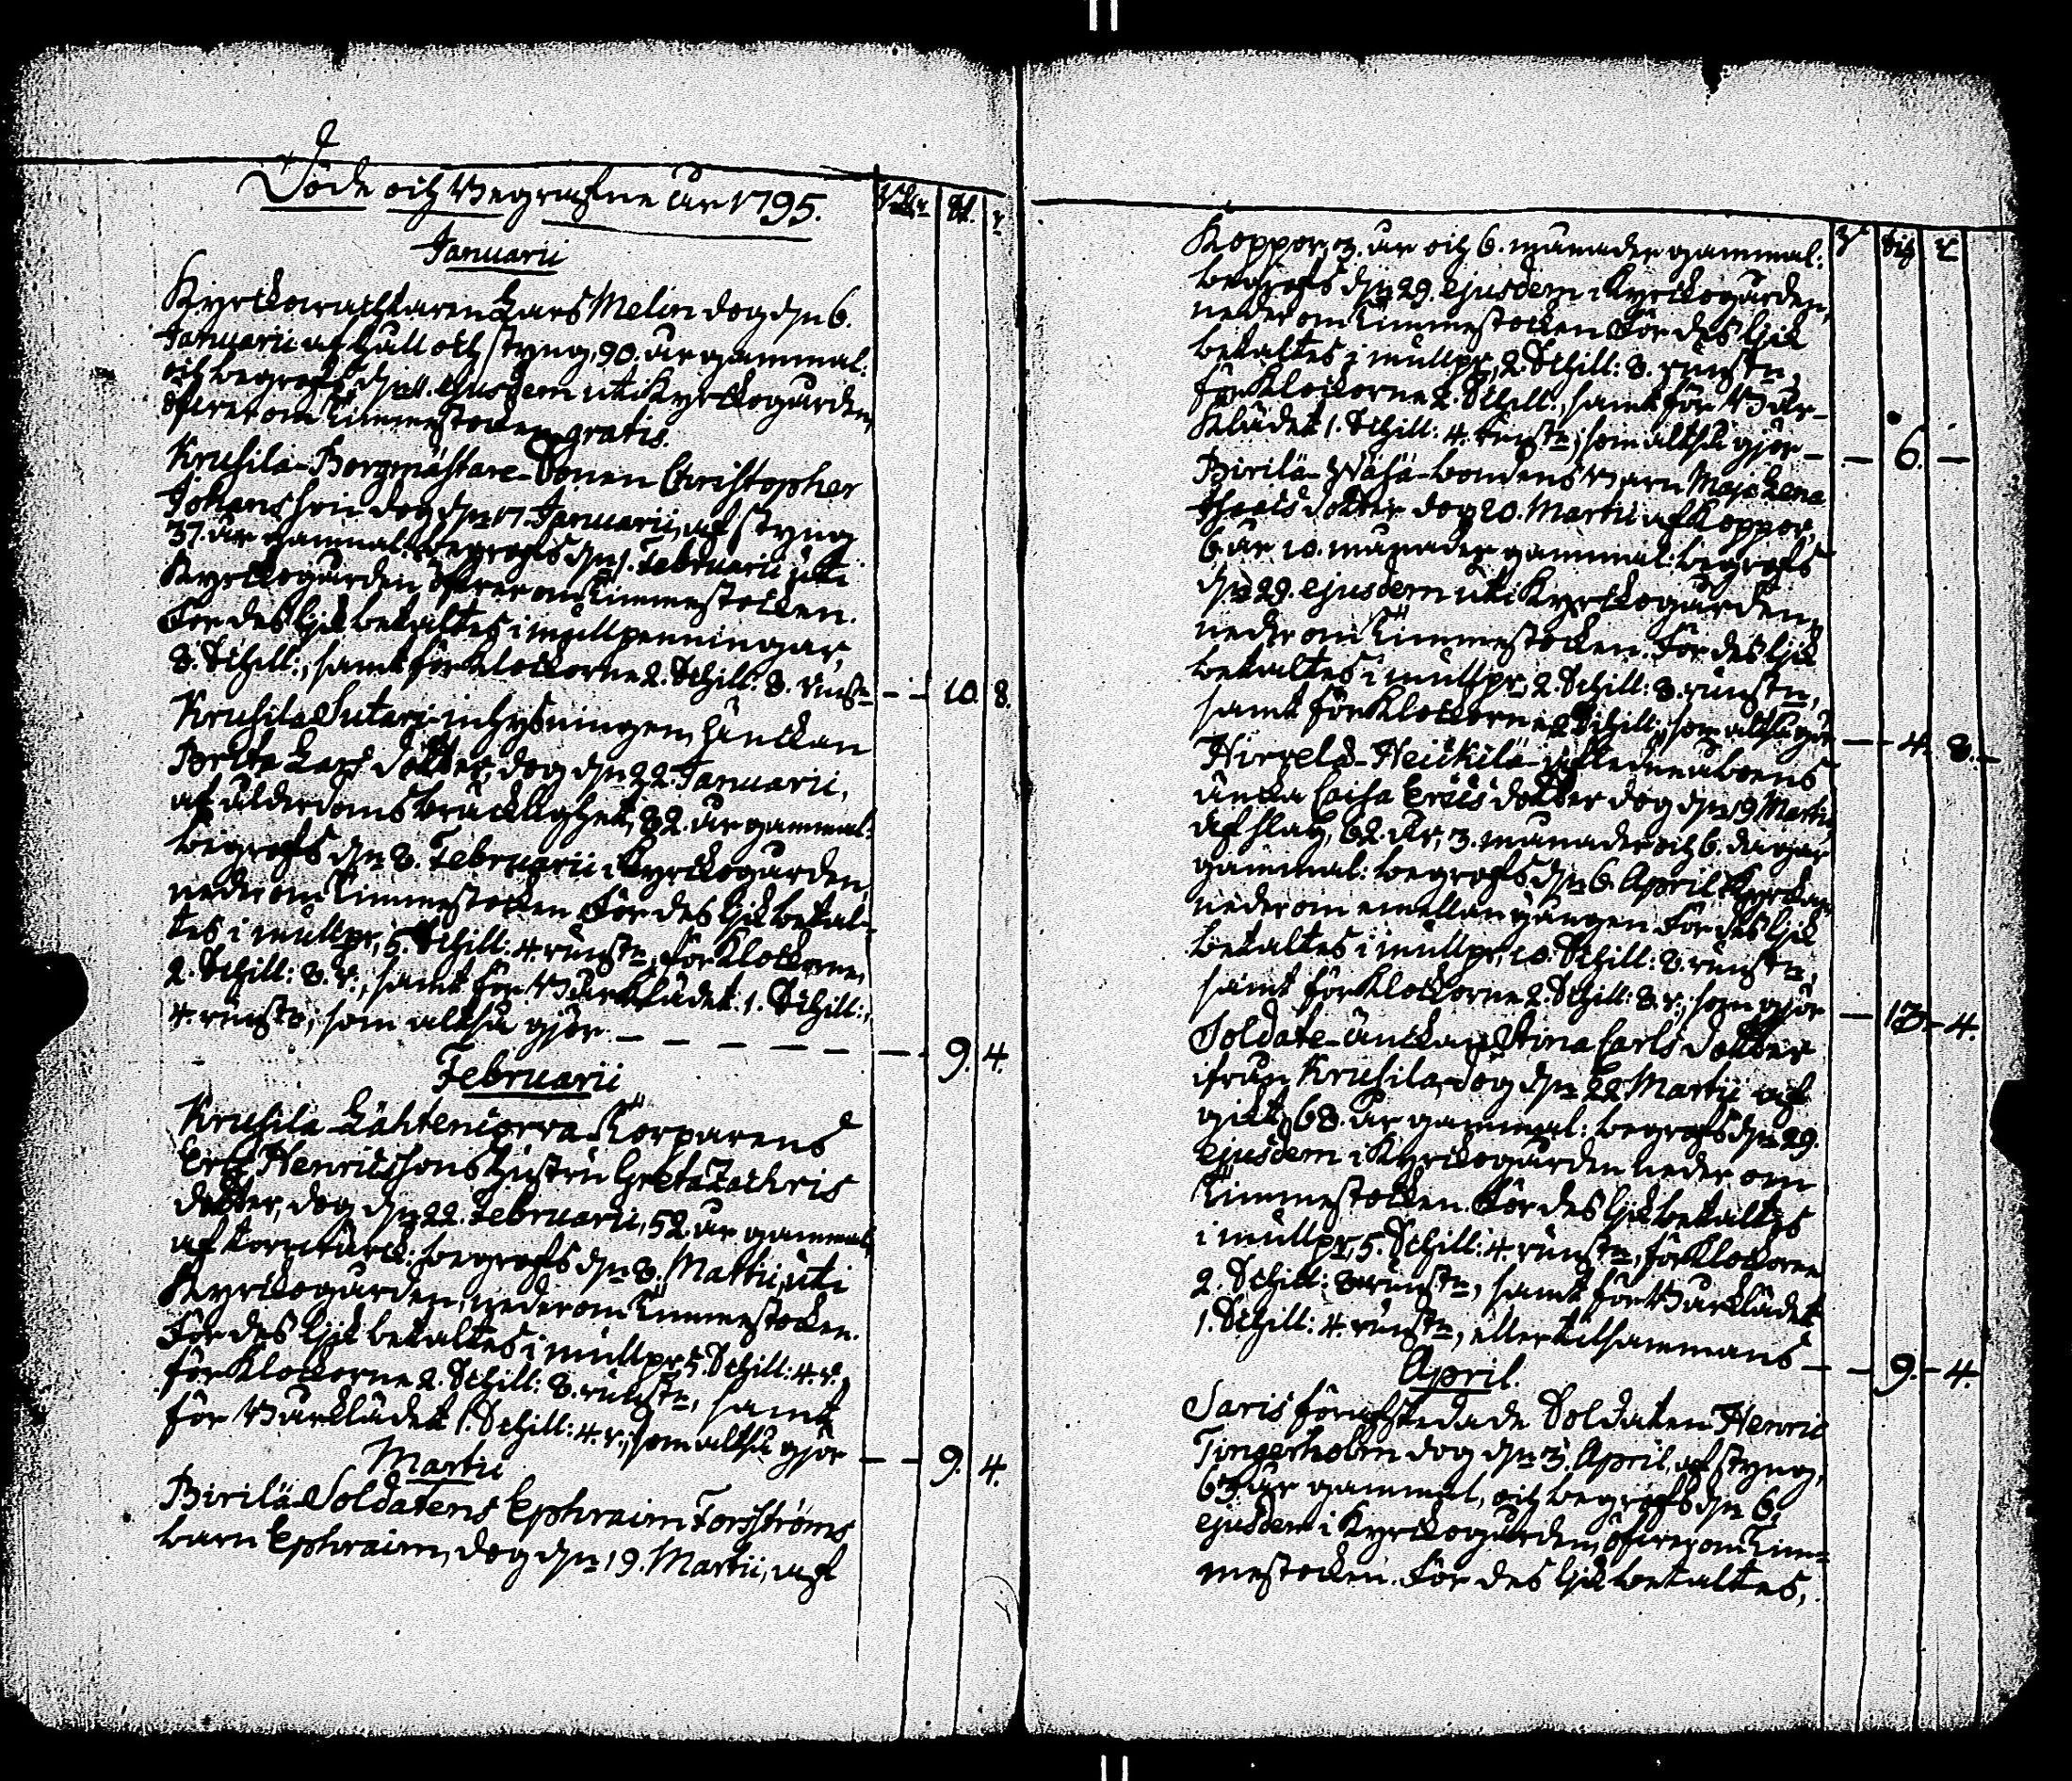 Döde och Begrafne år 1795.
Januarii
Kyrckowachtaren Lars Melin dog d:n 6.
Januarii af håll och styng, 90. år gammal:
och begrofs d:n 11. ejusdem uti Kyrckogården,
öfwer om Timmerstocken gratis.
Krusila-Borgmästare-Sonen Christopher
Johansson dog d:n 17. Januarii, af styng
37. år gammal: begrofs d:n 1. Februarii uti
Kyrckogården öfwer om Timmerstocken.
För des lijk betaltes i mullpenningar,
8. Schill:, samt för Klockorne 2. Schill: 8. runst:r — 10. 8.
Krusila Sutari inhysningen, Änckan
Brita Lars dotter, dog d:n 22. Januarii,
af ålderdoms bräcklighet, 82. år gammal:
begrofs d:n 8. Februarii i Kyrckogården
neder om Timmerstocken. För des lijk betal-
tes i mullpr, 5. Schill: 4. runst:r, för Klockorne,
2. Schill: 8. r:, samt för Bårklädet 1. Schill:,
4. runst:r, som altså gjör — — — — — 9. 4.
Februarii
Krusila-Lähteniorra-Torparens
Eric Henricssons hustru Greta Zachris
dotter, dog d:n 22. Februarii, 52. år gammal,
af torrwärck: begrofs d:n 8. Martii, uti
Kyrckogården, neder om Timmerstocken.
För des lijk betaltes i mullpr, 5. Schill: 4. r.,
för Klockorne 2. Schill: 8. runst:r, samt
för Bårklädet 1. Schill: 4. r., som altså gjör — — 9. 4.
Martii
Birilä-Soldatens Ephraim Forsströms
barn Ephraim, dog d:n 19. Martii, af
Koppor, 3. år och 6. månader gammal:
begrofs d:n 29. ejusdem i Kyrckogården,
neder om Timmestocken. För des lijk
betaltes i mullpr, 2. Schill: 8. runst:r,
för Klockorne 2. Schill:, samt för Bår-
klädet 1. Schill: 4. runst:r, som altså gjör — — 6. —
Birilä-Wähä-bondens barn Maja Lena
dotter dog 20. Martii af Koppor,
6. år 10. månader gammal: begrofs
d:n 29. ejusdem uti Kyrckogården,
neder om Timmestocken. För des lijk
betaltes i mullpr, 2. Schill: 8. runst:r,
samt för Klockorne 2. Schill:, som altså gjör — — 4. 8.
Hirvelä-Heickilä-afledne åboens
äncka Caisa Erics dotter dog d:n 19. Martii
af slag, 62. år, 3. månader och 6. dagar
gammal: begrofs d:n 6. April i Kyrckan
neder om emellangången. För des lijk
betaltes i mullpr, 10. Schill: 8. runst:r,
samt för Klockorne 2. Schill: 8. r., som gjör — 13. 4.
Soldate-änckan Stina Carls dotter
ifrån Krusila, dog d:n 22. Martii af
gikt, 68. år gammal: begrofs d:n 29.
ejusdem i Kyrckogården neder om
Timmestocken. För des lijk betaltes
i mullpr, 5. Schill: 4. runst:r, för Klockorne
2. Schill: 8. runst:r, samt för Bårklädet
1. Schill: 4. runst:r, eller tilsammans — — 9. 4.
April.
Saris förafskedade Soldaten Henric
Tingerholm dog d:n 3. April, af styng,
63. år gammal, och begrofs d:n 6.
ejusdem i Kyrckogården, öfwer om Tim-
mestocken. För des lijk betaltes,